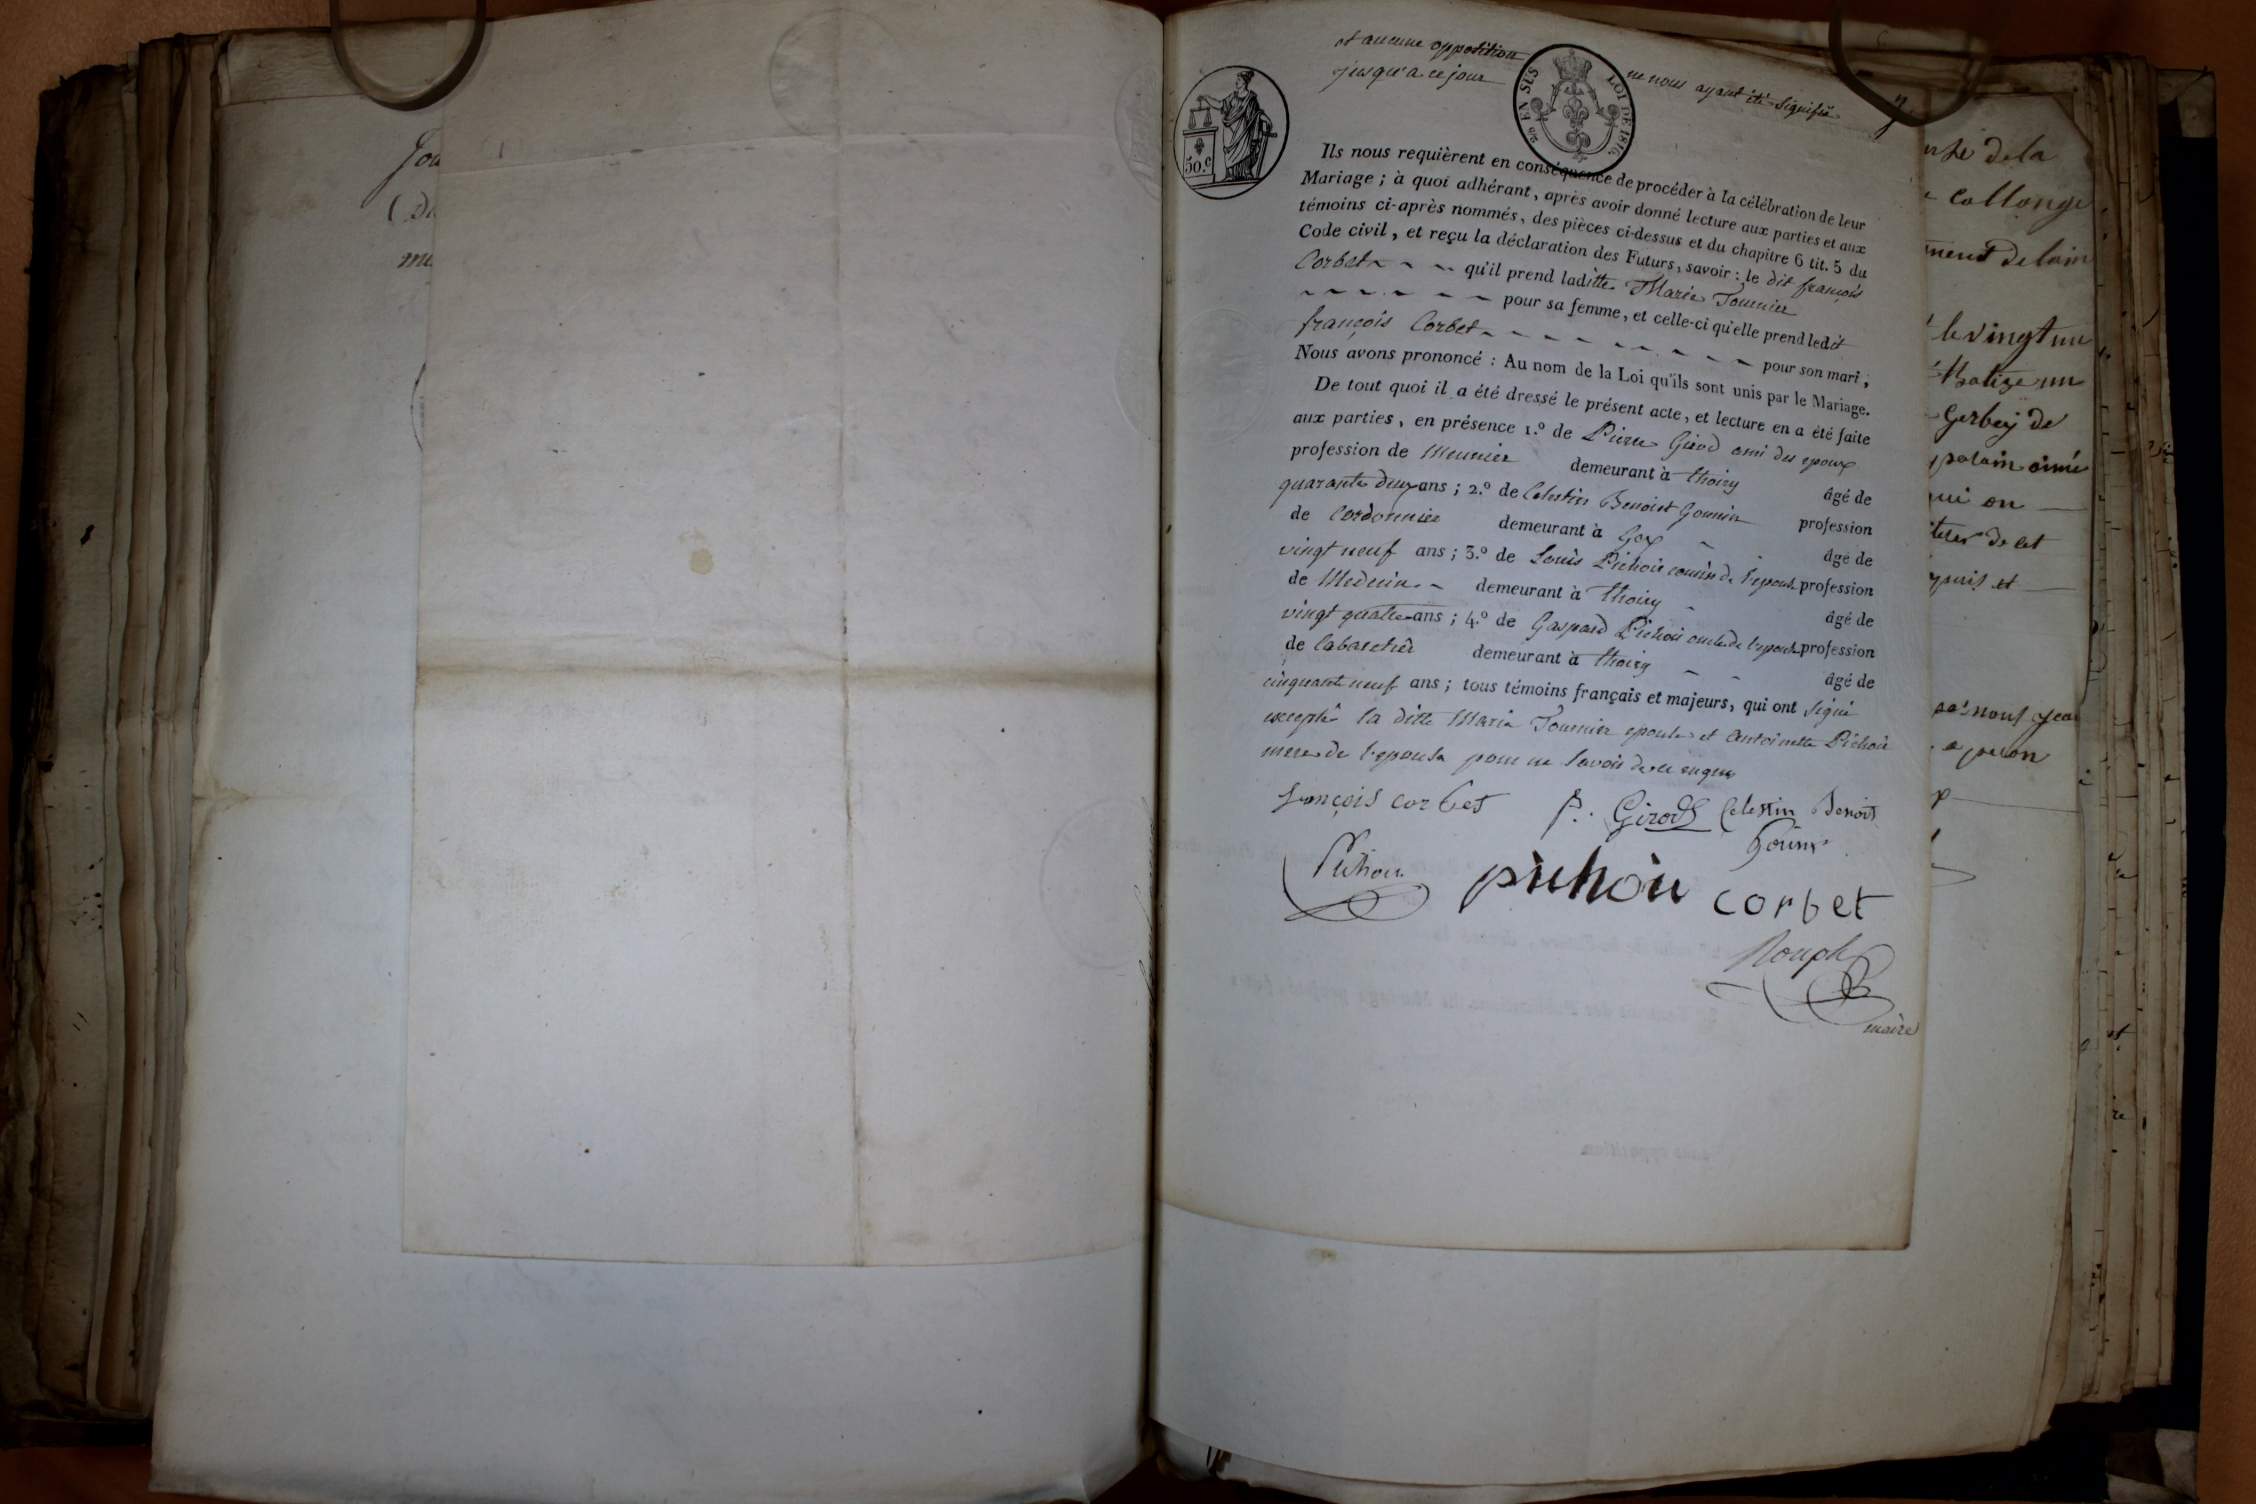 et aucune opposition ne nous ayant été signifié
jusqu'a ce jour
50.c
EN SUS
LOI DE 1816.
Ils nous requièrent en conséquence de procéder à la célébration de leur
Mariage ; à quoi adhérant, après avoir donné lecture aux parties et aux
témoins ci-après nommés, des pièces ci-dessus et du chapitre 6 tit. 5 du
Code civil, et reçu la déclaration des Futurs, savoir : le dit françois
Corbet qu'il prend laditte Marie Tournier
pour sa femme, et celle-ci qu'elle prend ledit
françois Corbet pour son mari ;
Nous avons prononcé : Au nom de la Loi qu'ils sont unis par le Mariage.
De tout quoi il a été dressé le présent acte, et lecture en a été faite
aux parties, en présence 1.º de Pierre Girod ami des epoux
profession de Meunier demeurant à thoiry âgé de
quarante deux ans ; 2.º de Celestin Benoist Gounin profession
de Cordonnier demeurant à Gex âgé de
vingt neuf ans ; 3.º de Louis Pichoir cousin de l'epouse profession
de Medecin demeurant à thoiry âgé de
vingt quatre ans ; 4.º de Gaspard Pichoir oncle de l'epouse profession
de Cabaretier demeurant à thoiry âgé de
cinquante neuf ans ; tous témoins français et majeurs, qui ont signé
excepté la ditte Marie Tournier epouse et antoinette Pichoir
mere de l'epouse pour ne savoir de ce enquis
françois corbet P. Girod Celestin Benoit
Gounin
Pichoir pichoir corbet
Rouph
maire
Jou
(Du
mu
de la
collonge
le vingt un
Gerbey de
qui on
de cet
et
nous jean